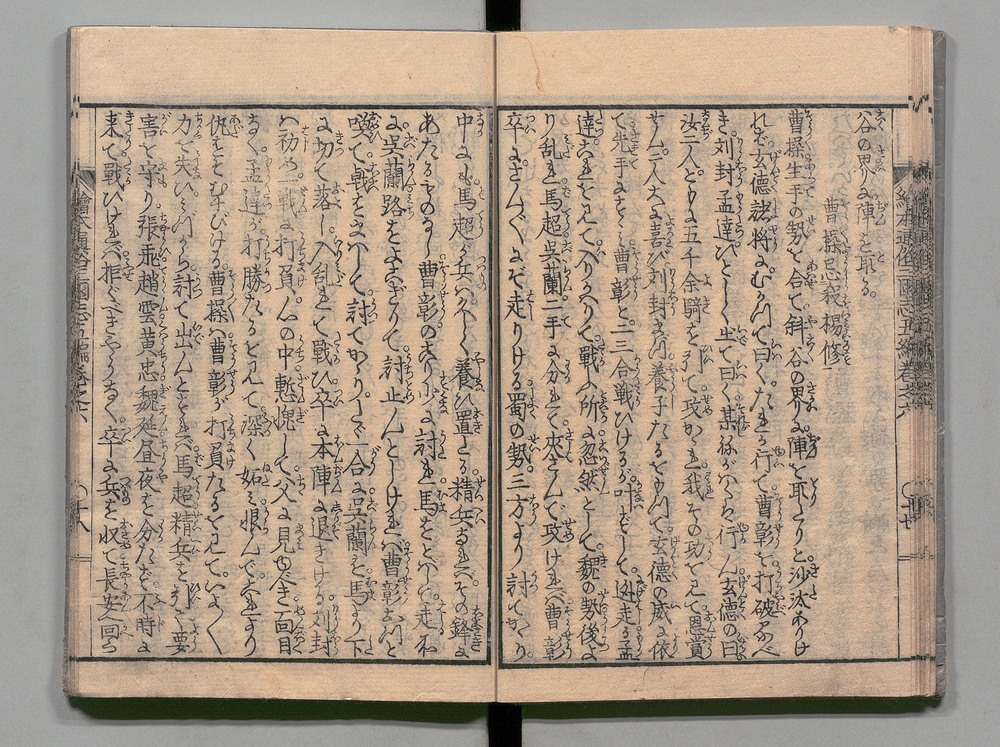 谷の界に陣を取る。
曹操忌殺楊修
曹操生手の勢を合て斜谷の界に陣を取たりと沙汰ありけ
れば玄徳諸将にむかつて曰くたれか行て曹彰を打破るべ
き。刘封孟達ひとしく出て曰く某ねがはくは行ん玄徳の曰
汝二人ともに五千余騎を引て攻かゝれ我その功を見て恩賞
せん二人大に喜び刘封は養子たるをもつて玄徳の威に依
て先手にすゝむ曹彰と二三合戦ひけるが叶ずして逃走る孟
達これを見て入かへつて戦ふ所に忽然として魏の勢後よ
り乱れ馬超呉蘭二手に分れて夾さんで攻けれバ曹彰
卒にさんざんになぞ走りける蜀の勢三方より討てかゝり
中にも馬超が兵ハ久しく養ひ置たる精兵なれバその鋒に
あたるものなし曹彰のこり少に討れ馬をとばして走れバ
呉蘭路をよこぎりて討止んとしけれバ曹彰おつと
喚て戟をまハして討てかゝりたゞ一合に呉蘭を馬より下
に切て落し入乱れて戦ひ卒に本陣に退きける刘封
ハ初めの戦に打負心の中慙愧して父に見ゆべき面目
なく孟達が打勝たるを見て深く妬ミ恨んでこれより
仇をむすびける曹操ハ曹彰が打負たるを見ていよいよ
力を失ひミづから討て出んとすれバ馬超精兵を引て要
害を守り張飛趙雲黄忠魏延昼夜を分たず不時に
来て戦ひけれバ拒ぐべきやうなく。卒に兵を収て長安へ回ら